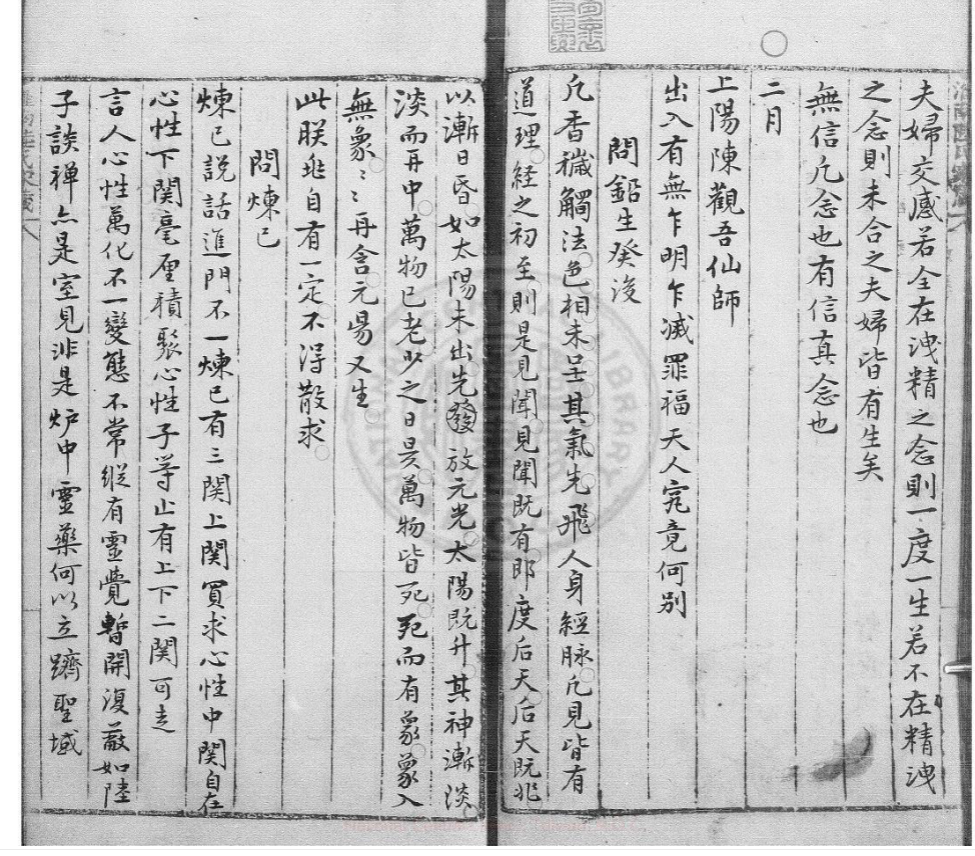 夫婦交感若全在洩精之念則一度一生若不在精洩
之念則未合之夫婦皆有生矣
無信凡念也有信真念也
二月
上陽陳觀吾仙師
出入有無乍明乍滅罪福天人究竟何別
問鉛生癸後
凡香穢觸法色相未呈其氣先飛人身經脉凡見皆有
道理經之初至則是見聞見聞既有即度后天后天既非
以漸日昏如太陽未出先發放元光太陽既升其神漸淡
淡而再中萬物已老少之日昃萬物皆死死而有象象入
無象〻〻再含元昜又生
此朕兆自有一定不得散求
問煉已
煉已說話進門不一煉已有三関上関買求心性中関自在
心性下関毫厘積聚心性子等止有上下二関可走
言人心性萬化不一變態不常縱有靈覺暫開復蔽如陸
子談禪亦是室見非是炉中靈藥何以立躋聖域